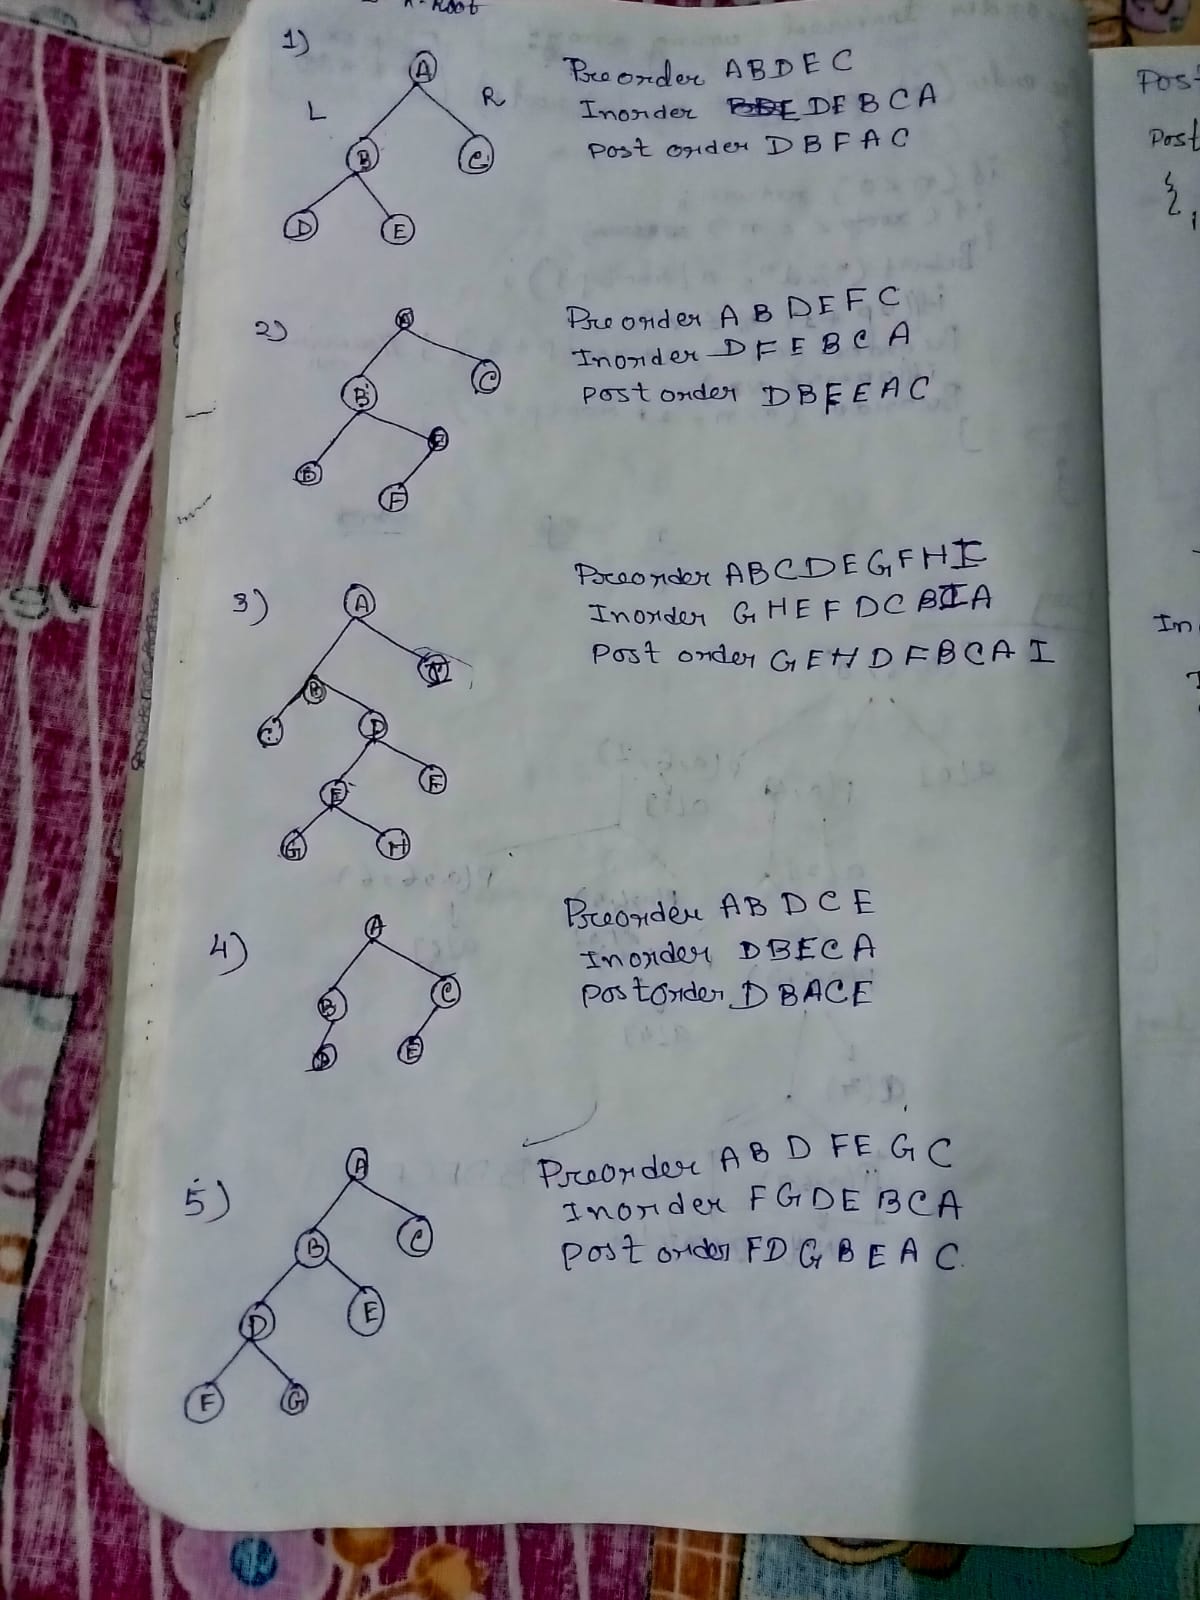 R-Root
1)
A
L
R
B
C
D
E
Preorder ABDEC
Inorder DEBCA
Post order DBFAC
2)
A
B
C
F
Preorder ABDEFC
Inorder DFEBCA
Post order DBFEAC
3)
A
B
C
D
E
F
G
H
Preorder ABCDEGFHI
Inorder GHEFDCBIA
Post order GEHDFBCAI
4)
A
B
C
D
E
Preorder ABDCE
Inorder DBECA
Postorder DBACE
5)
A
B
C
D
E
F
G
Preorder ABDFEGC
Inorder FGDEBCA
Post order FDGBEAC.
Post
{
In